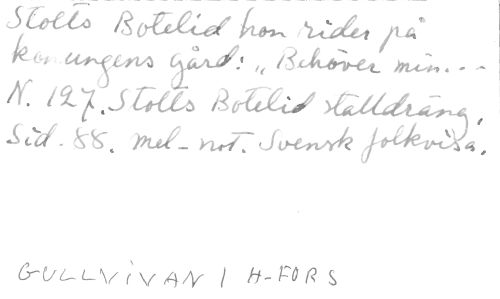 Stolts Botelid hon rider på
konungens gård: „Behöver min...
N. 127. Stolts Botelid stalldräng.
Sid. 88. mel-not. Svensk folkvisa.
GULLVIVAN / H-FORS